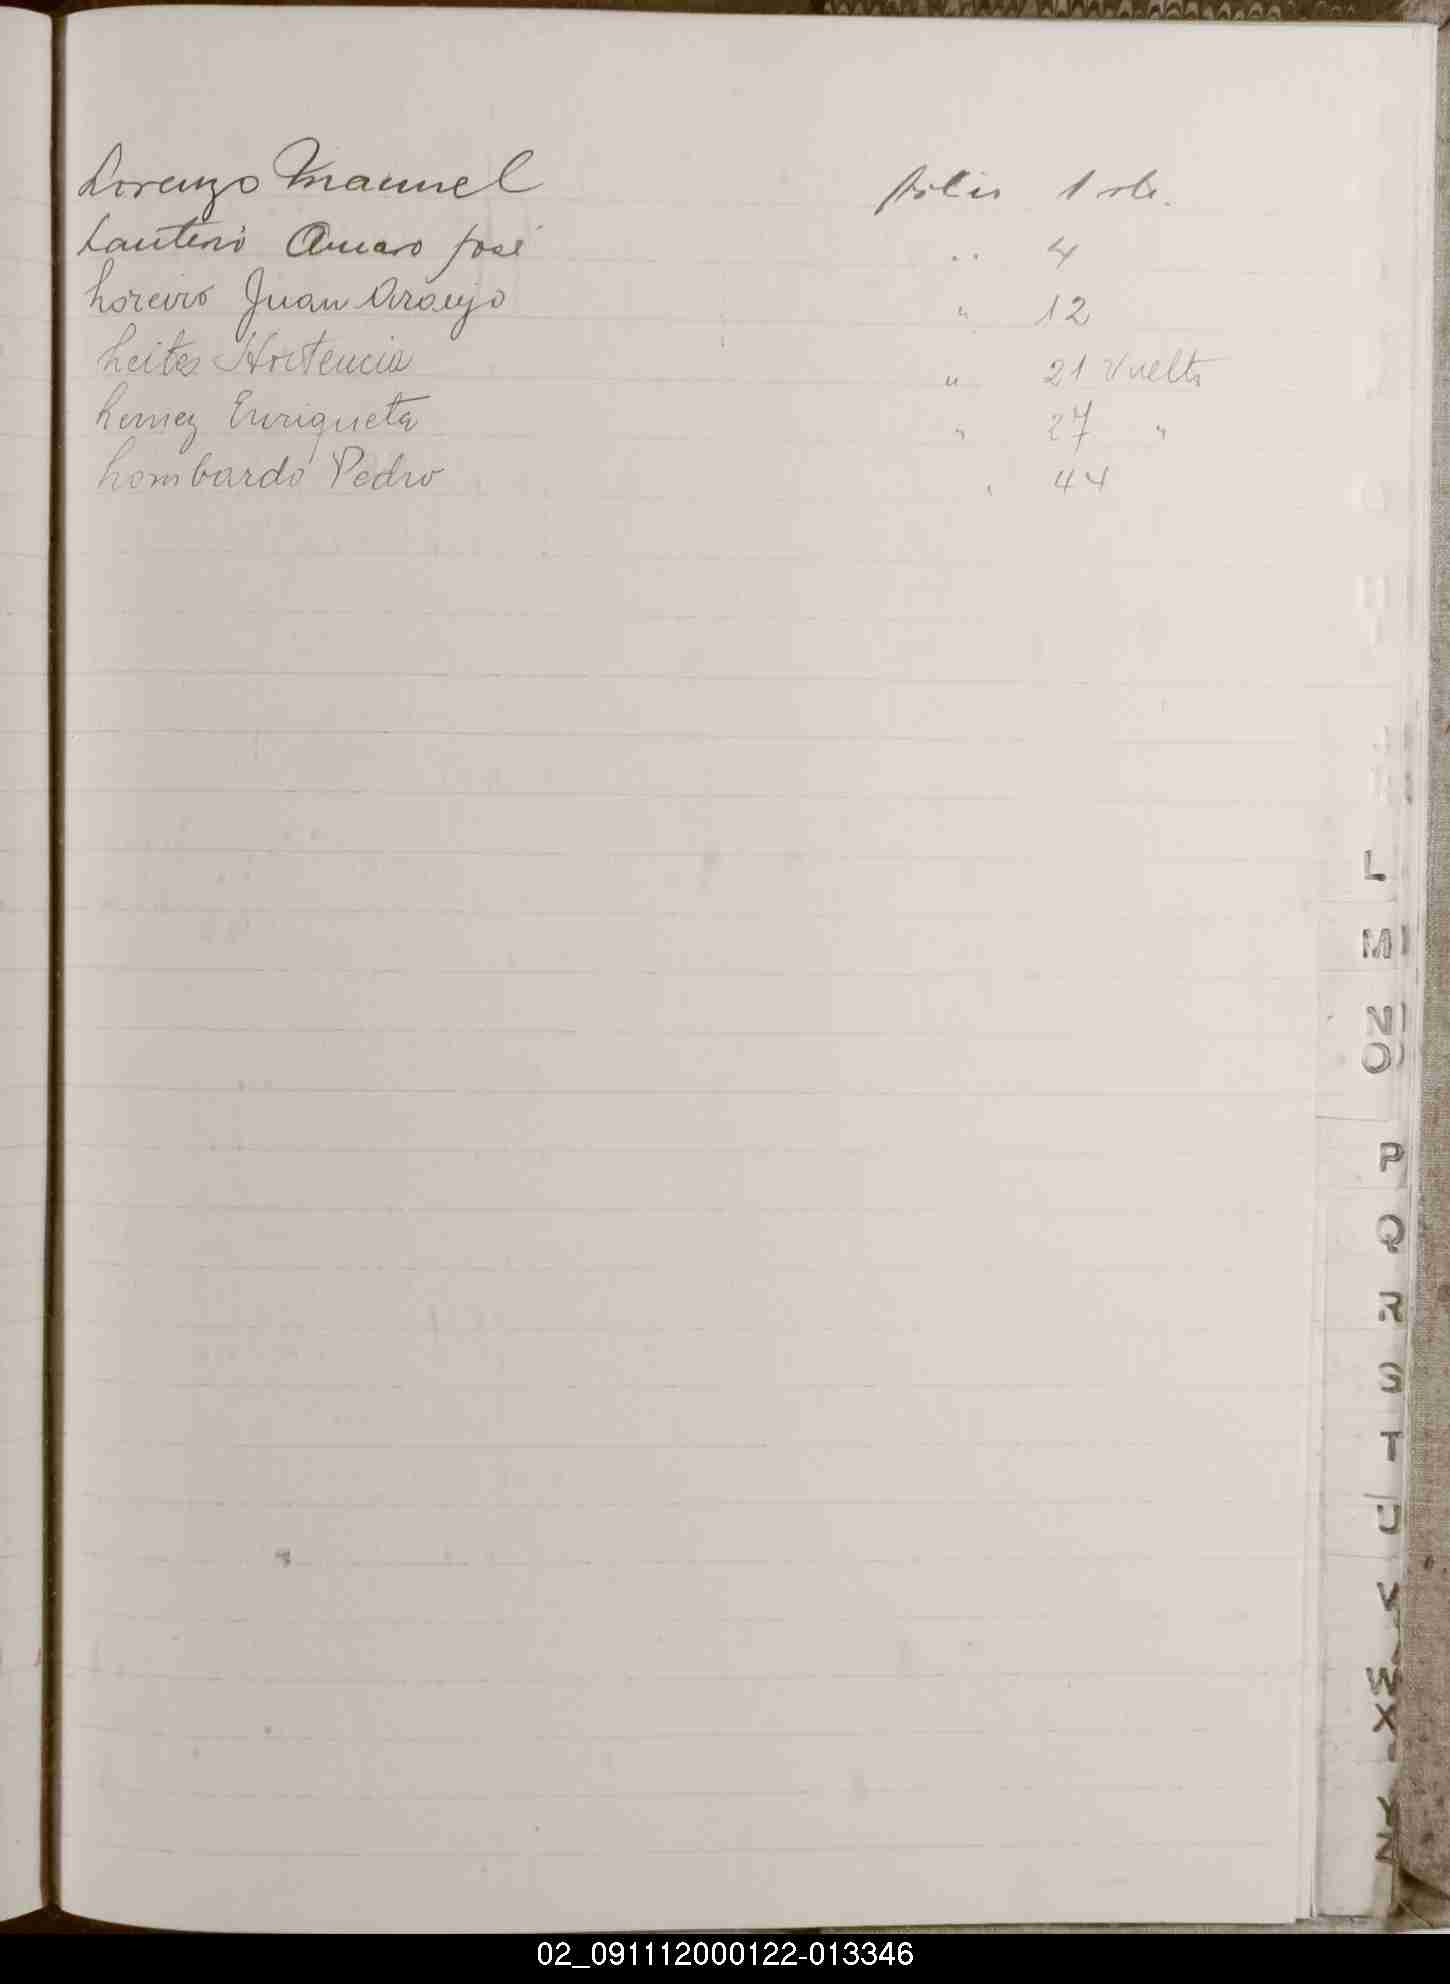 Lorenzo Manuel folio 1 vlt.
Lanteri Amaro José " 4
Loreiro Juan Araujo " 12
Leites Hortencia " 21 Vuelta
Lemez Enriqueta " 27 "
Lombardo Pedro " 44
L
M
N
O
P
Q
R
S
T
U
V
W
X
Y
Z
02_091112000122-013346